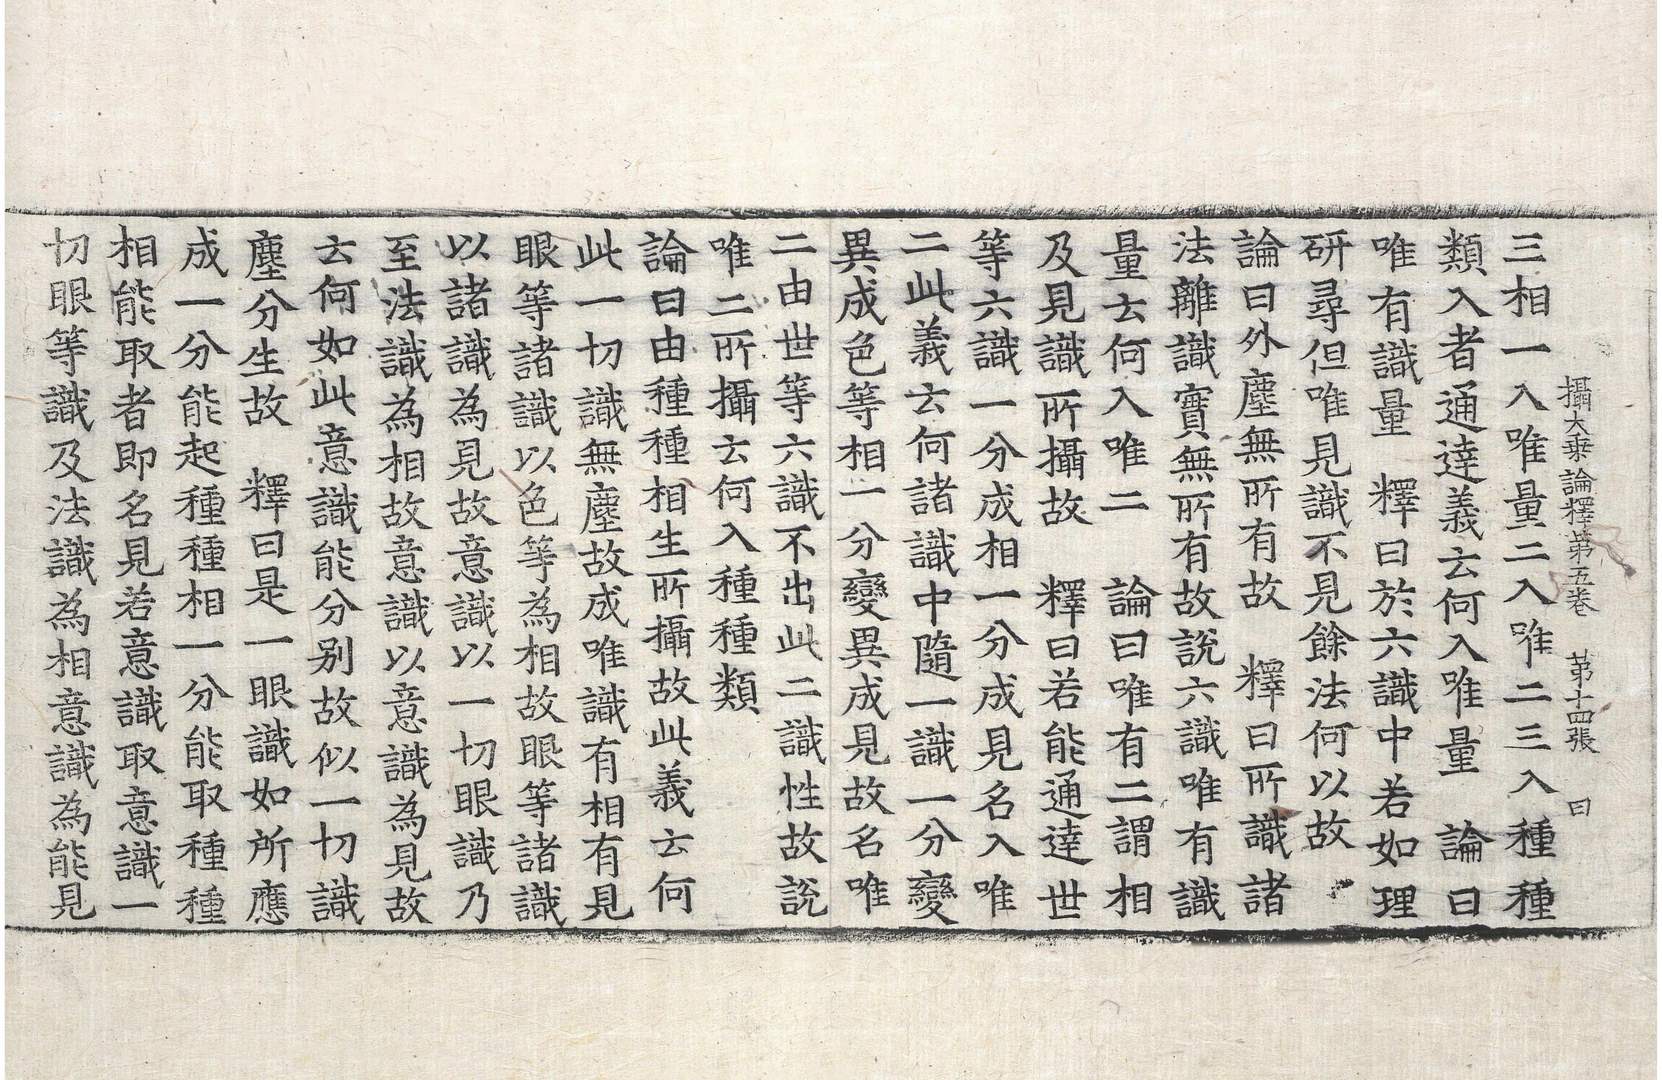 攝大乘論釋第五卷　第十四張　曰
三相一入唯量二入唯二三入種種
類入者通達義云何入唯量　論曰
唯有識量　釋曰於六識中若如理
研尋但唯見識不見餘法何以故
論曰外塵無所有故　釋曰所識諸
法離識實無所有故說六識唯有識
量云何入唯二　論曰唯有二謂相
及見識所攝故　釋曰若能通達世
等六識一分成相一分成見名入唯
二此義云何諸識中隨一識一分變
異成色等相一分變異成見故名唯
二由世等六識不出此二識性故說
唯二所攝云何入種種類
論曰由種種相生所攝故此義云何
此一切識無塵故成唯識有相有見
眼等諸識以色等為相故眼等諸識
以諸識為見故意識以一切眼識乃
至法識為相故意識以意識為見故
云何如此意識能分別故似一切識
塵分生故　釋曰是一眼識如所應
成一分能起種種相一分能取種種
相能取者即名見若意識取意識一
切眼等識及法識為相意識為能見